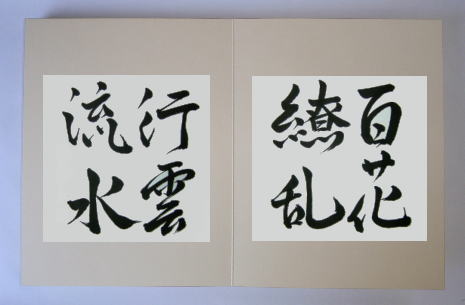 百花
繚乱
行雲
流水